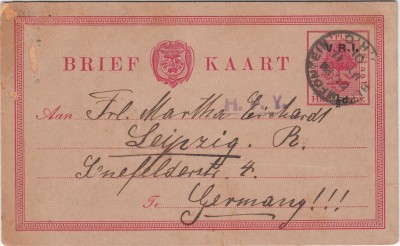 V.R.I.
BRIEF KAART
H. Y.
Aan Frl. Martha Einhardt
Leipzig. R.
Senefelderstr. 4.
Te Germany!!!